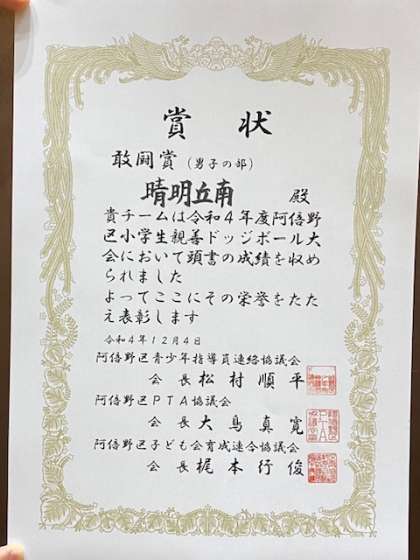 賞状
敢闘賞(男子の部)
晴明丘南 殿
貴チームは令和4年度阿倍野
区小学生親善ドッジボール大
会において頭書の成績を収め
られました
よってここにその栄誉をたた
え表彰します
令和4年12月4日
阿倍野区青少年指導員連絡協議会
会長 松村順平
阿倍野区PTA協議会
会長 大鳥真寛
阿倍野区子ども会育成連合協議会
会長 梶本行俊